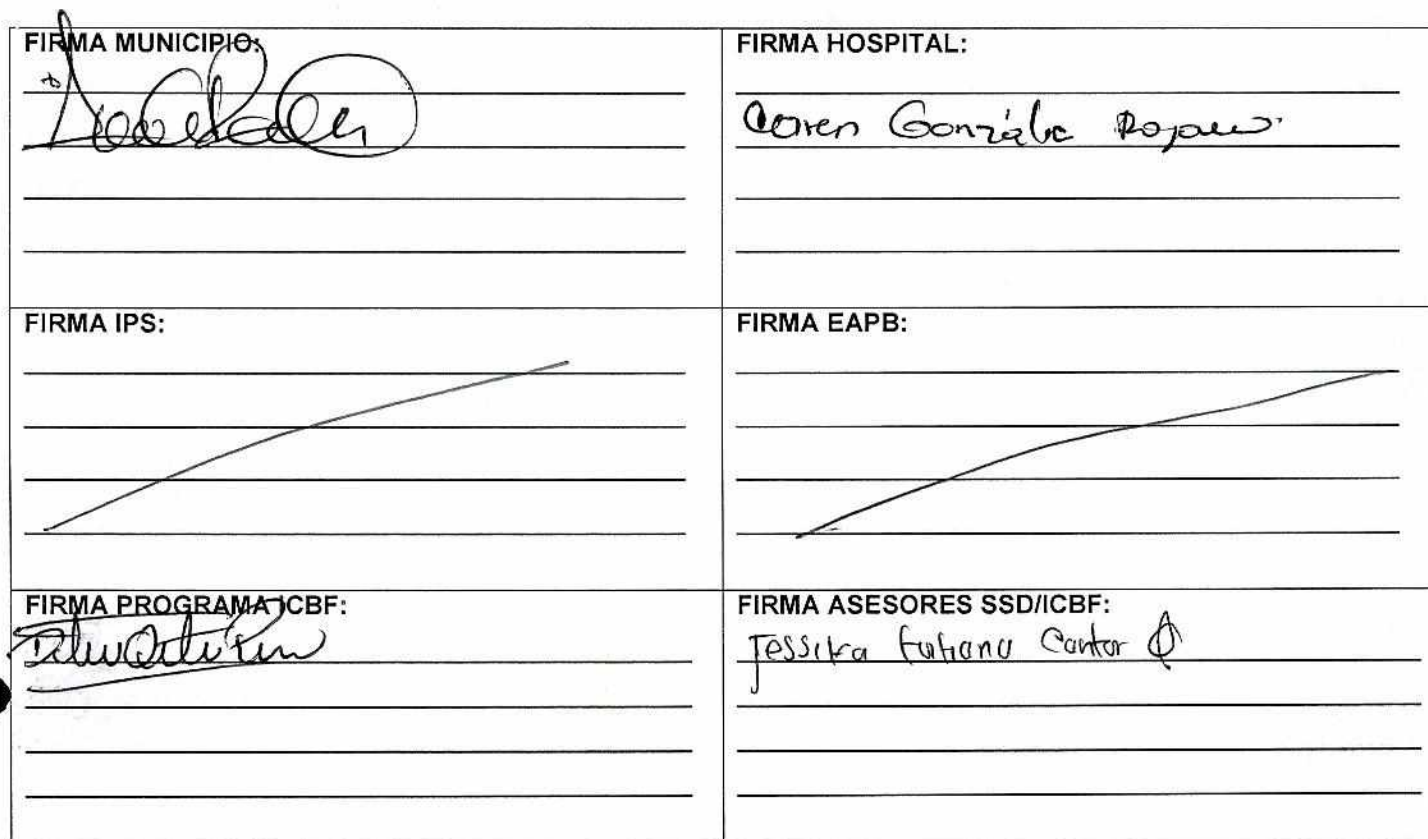 FIRMA MUNICIPIO:
FIRMA HOSPITAL:
Caren González Rojas
FIRMA IPS:
FIRMA EAPB:
FIRMA PROGRAMA ICBF:
FIRMA ASESORES SSD/ICBF:
Jessika Tatiana Cantor